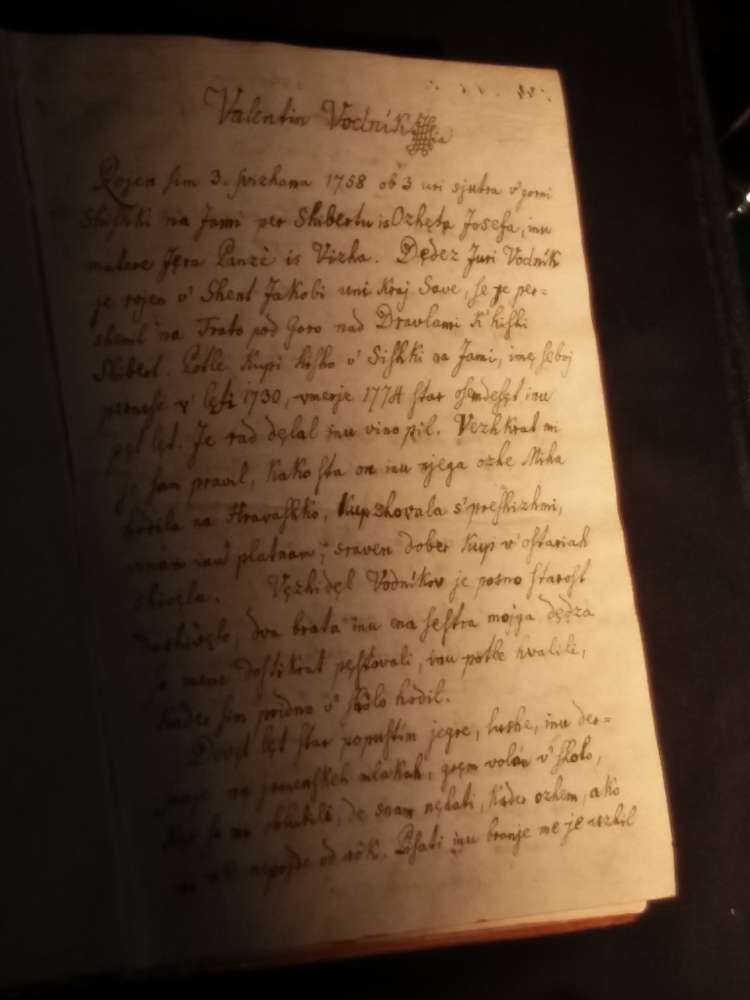 Valentin Vodnik
Rojen sim 3. svizhana 1758 ob 3 uri sjutra v' gorni
Shishki na Jami per Shibertu is Ozhęta Josefa, inu
matare Jęra Panzè is Vizha. Dędez Juri Vodnik
je rojen v' Shent Jakobi uni kraj Save, se je per=
shenil na Trato pod Goro nad Dravlami k' hishi
Shibert. Potle kupi hisho v' Sishki na Jami, imę seboj
pernese v' lęti 1730, vmerje 1774 star osemdesęt inu
pęt lęt. Je rad dęlal inu vino pil. Vezhkrat mi
je sam pravil, kako sta on inu njega ozhe Miha
hodila na Hravashko, kupzhovala s' preshizhmi,
vinam inu platnam; sraven dober kup v' oshtariah
shivęla. Vęzhidęl Vodnikov je posno starost
doshivęlo, dva brata inu ena sestra mojga dędza
so mene dostikrat pęstovali, inu potle hvalili,
kader sim pridno v' sholo hodil.
Devęt lęt star popustim jegre, lushe, inu der=
na jamenskeh mlakah, gręm volan v' sholo,
ker so mi oblubili, de snam nęhati, kader ozhem, ako
mi nepojde od rôk. Pisati inu branje me je uzhil